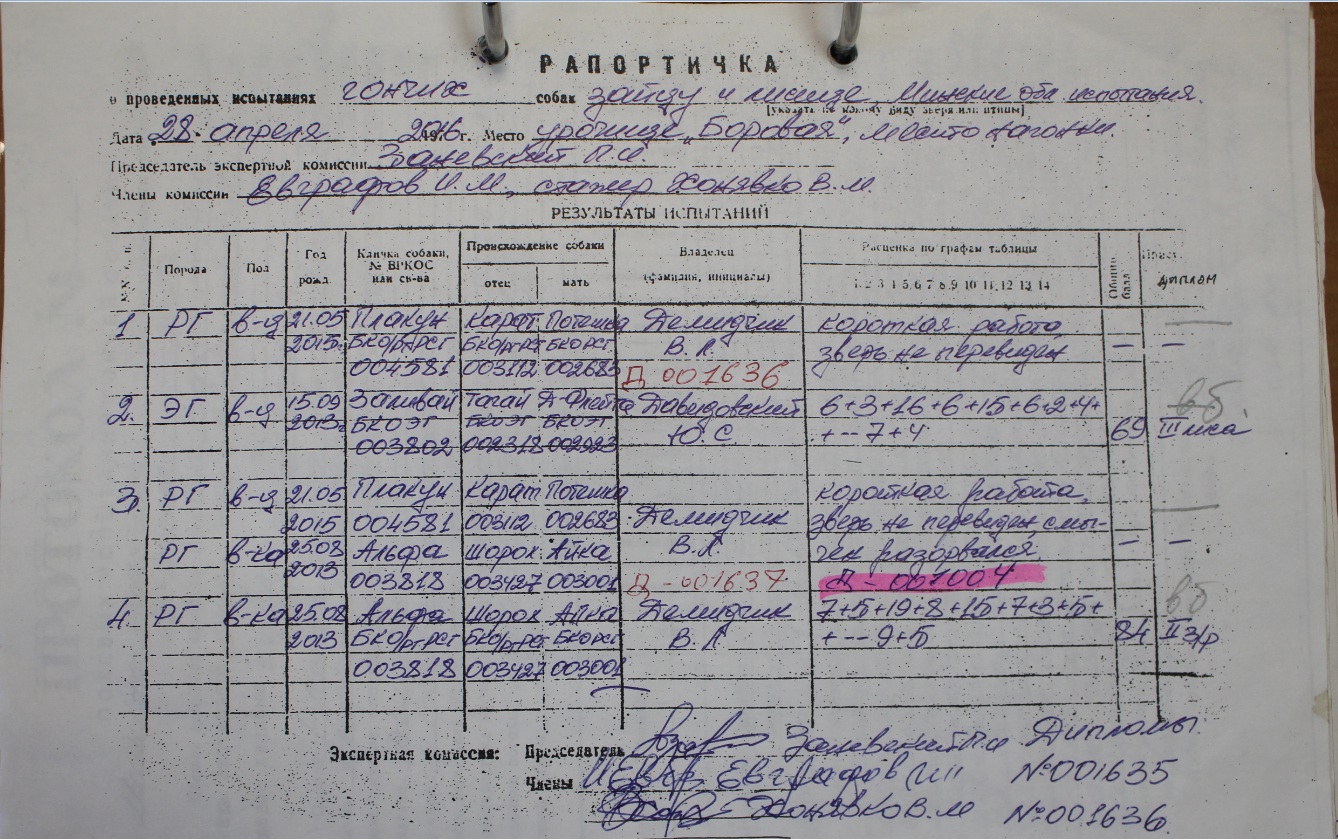 РАПОРТИЧКА
о проведенных испытаниях гончих собак зайцу и лисице Минские обл испытания.
[указать по какому виду зверя или птицы]
Дата 28. апреля 2016 г. Место урочище „Боровая", место нагонки.
Председатель экспертной комиссии Заневский П.И.
Члены комиссии Евграфов И.М, стажер Хонявко В.М
РЕЗУЛЬТАТЫ ИСПЫТАНИЙ
Порода Пол Год рожд. Кличка собаки, № ВРКОС или св-ва Происхождение собаки отец мать Владелец (фамилия, инициалы) Расценка по графам таблицы 1 2 3 4 5 6 7 8 9 10 11 12 13 14 Общий балл диплом
1 РГ в-ц 21.05 Плакун Карат Потешка Демидчик короткая работа,
2015г. БКО/ргРСГ БКОргРСГ БКОРСГ В.Л. зверь не перевиден — —
004581 003112 002683 Д 001636
2. ЭГ в-ц 15.09 Заливай Тогай Д-Флейта Давидовский 6+3+16+6+15+6+2+4+ вб.
2013г БКОЭГ БКОЭГ БКОЭГ Ю.С +--7+4 69 III
003802 002318 002923
3. РГ в-ц 21.05 Плакун Карат Потешка короткая работа,
2015 004581 003112 002683 Демидчик зверь не перевиден, смы-
РГ в-ка 25.08 Альфа Шорох Айна В.Л. чек разорвался. — —
2013 003818 003427 003001 Д-001637 Д-001004
4. РГ в-ка 25.08 Альфа Шорох Айна Демидчик 7+5+19+8+15+7+3+5+ вб
2013 БКО/ргРСГ БКО/ргРСГ БКОРСГ В.Л +--9+5 84 II з/р
003818 003427 003001
Экспертная комиссия: Председатель Заневский П.И Дипломы
Члены Евграфов ИМ №001635
Хонявко В.М №001636